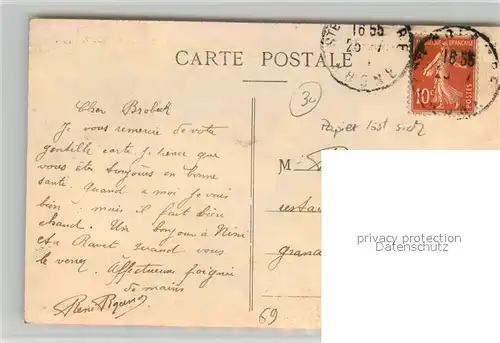 CARTE POSTALE
16 55
25 7
RHONE
16 55
25 7
REPUBLIQUE FRANÇAISE
10c
POSTES
30
Papier löst sich
Cher Brobeck
Je vous remercie de votre
gentille carte. Je pense que
vous êtes toujours en bonne
santé. Quand a moi je vais
bien. mais il fait bien
chaud. Un bonjour à Nini
et a Ravet quand vous
le verrez. Affectueuses poignées
de mains
René
M
Grand
69
privacy protection
Datenschutz